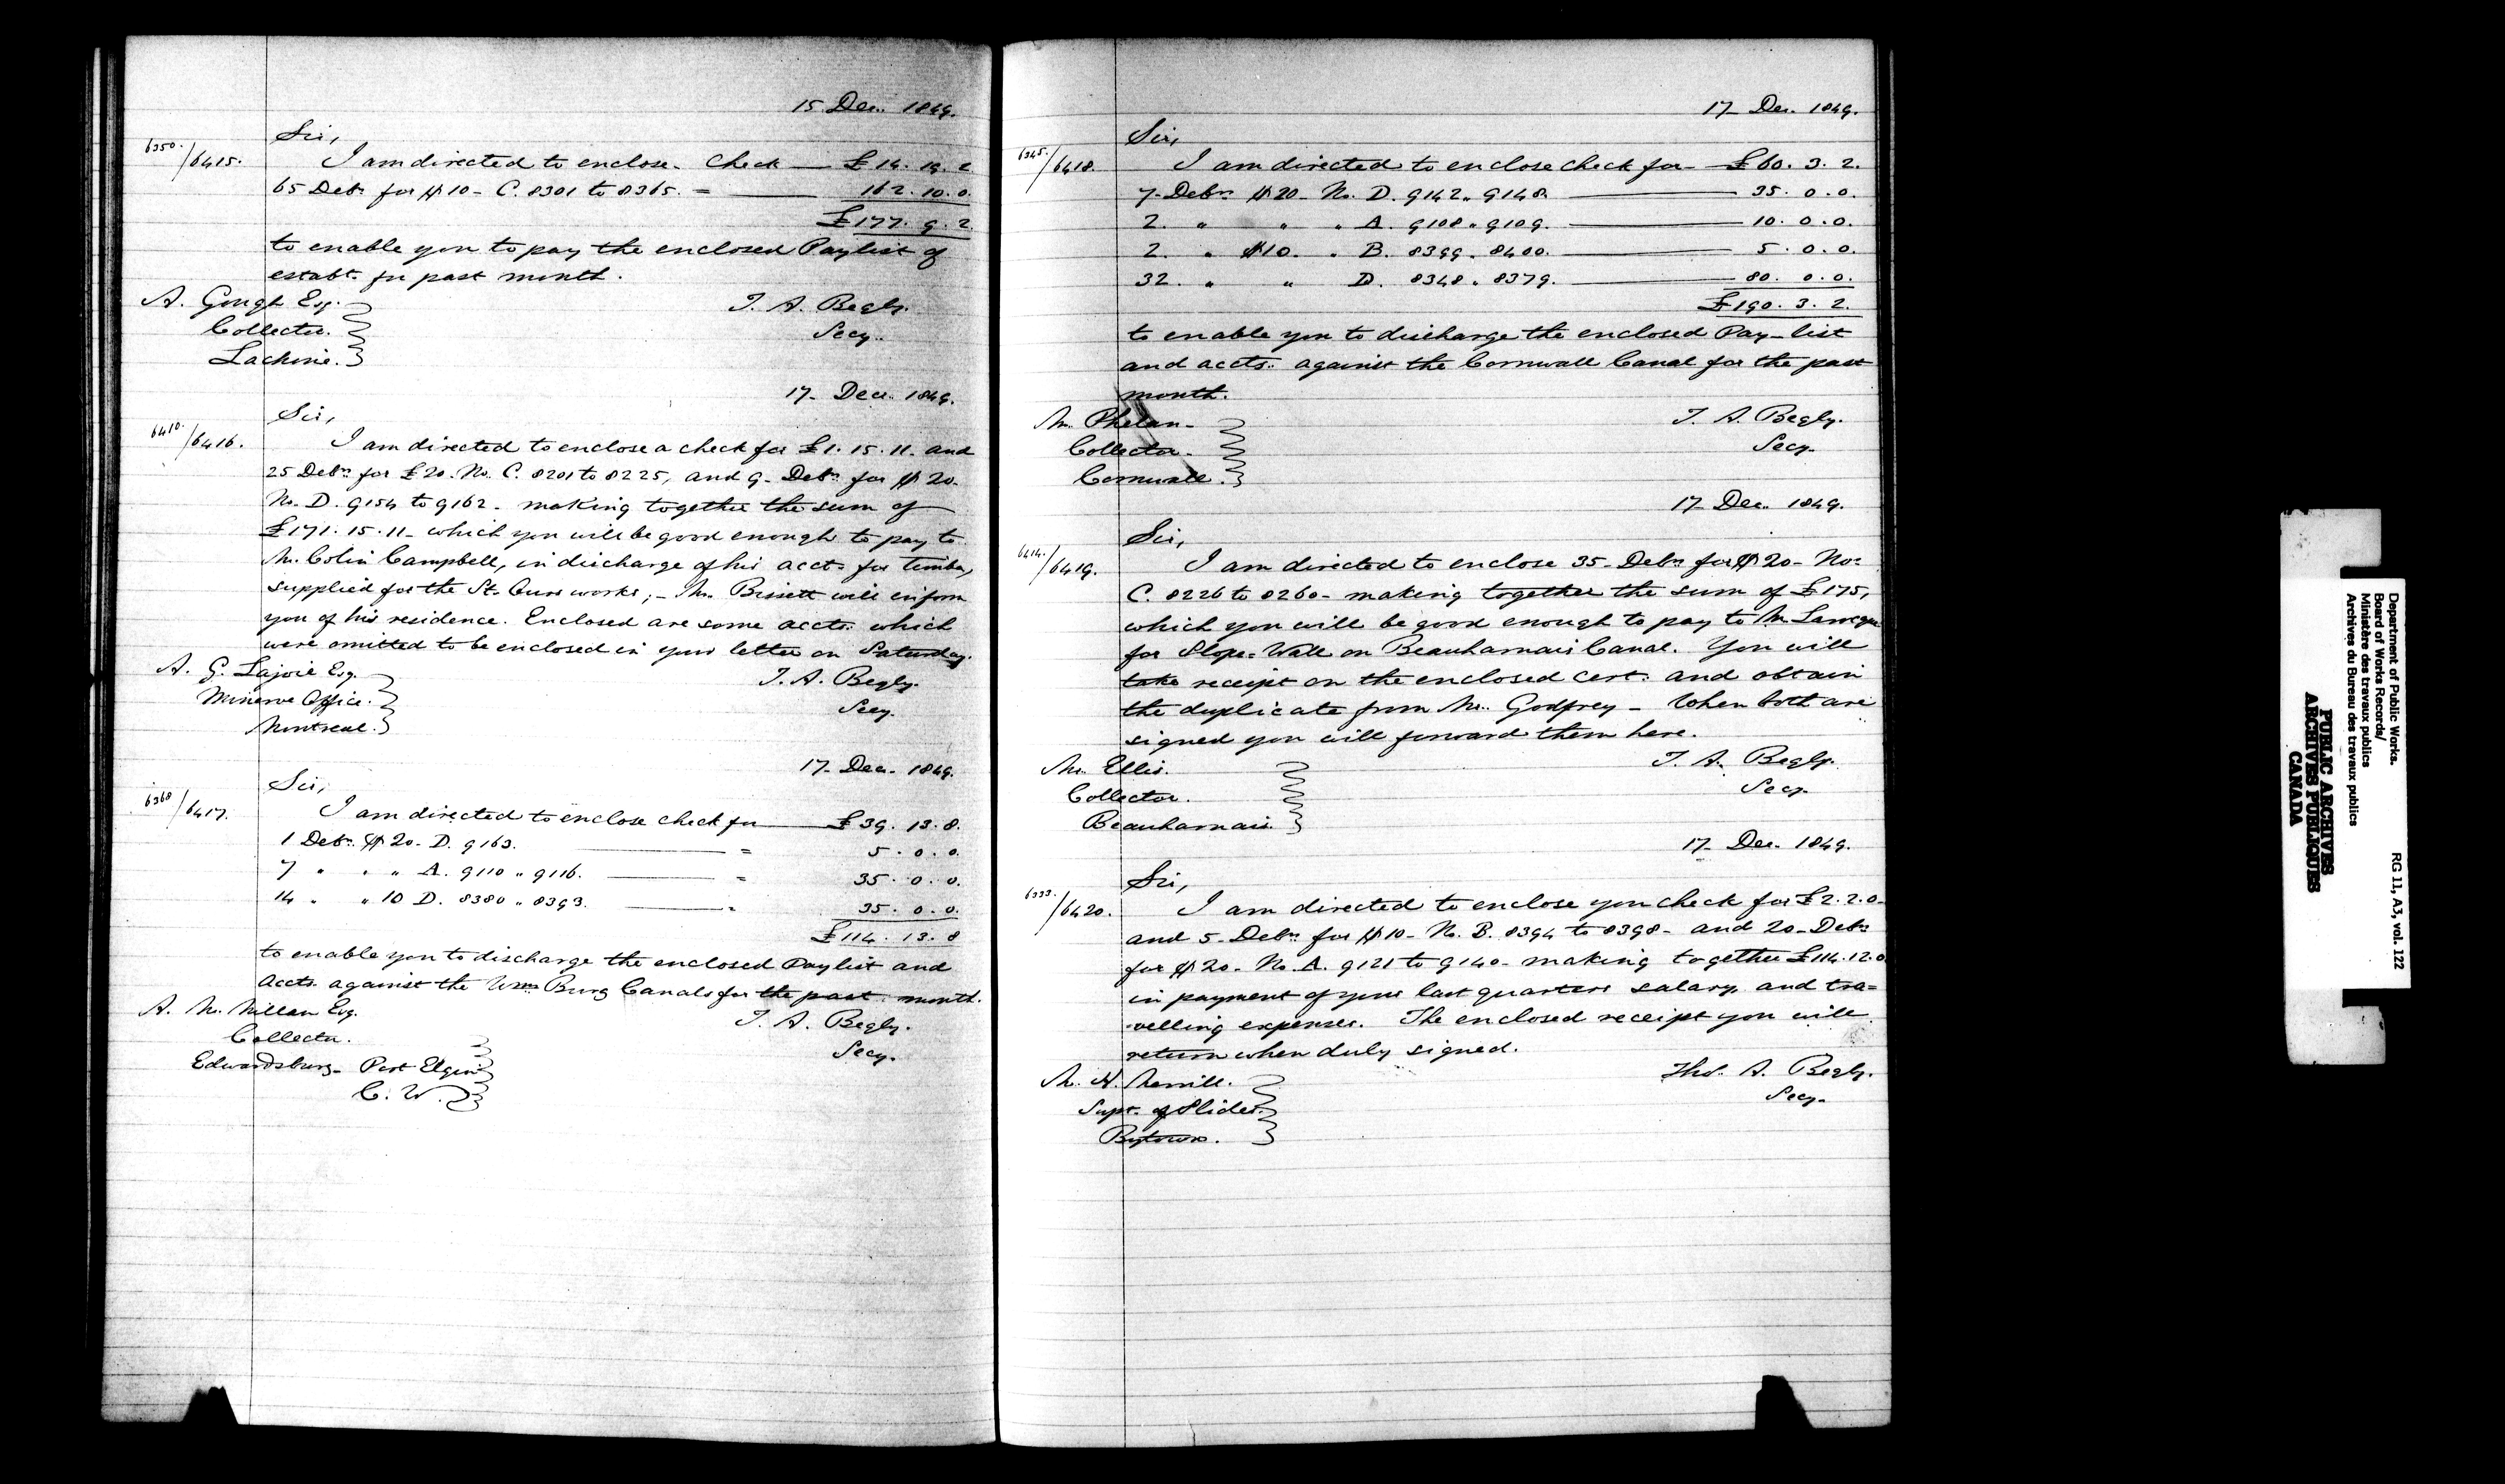 15 Dec. 1849.
Sir,
6350./6415. I am directed to enclose Check — £ 14. 19. 2
65 Debs. for $10 - C. 8301 to 8365. = — 162. 10. 0.
£177. 9. 2
to enable you to pay the enclosed Paylist of
establt. for past month.
A. Gough Esq.
Collector.
Lachine.
T. A. Begly.
Secy.
17 - Dec. 1849.
Sir,
6410./6416. I am directed to enclose a check for £1. 15. 11. and
25 Debrs for £20. No. C. 8201 to 8225, and 9 - Debrs for $ 20 -
No. D. 9154 to 9162 - making together the sum of
£171. 15. 11 - which you will be good enough to pay to
Mr. Colin Campbell, in discharge of his acct. for timber,
supplied for the St. Ours works; - Mr. Bissett will inform
you of his residence. Enclosed are some accts. which
were omitted to be enclosed in your letter on Saturday.
A. G. Lajoie Esq.
Minerve Office.
Montreal.
T. A. Begly.
Secy.
17 - Dec. 1849.
Sir,
6368/6417. I am directed to enclose check for — £ 39. 13. 8.
1 Debr. $ 20 - D. 9163. — = 5. 0. 0.
7 " " " A. 9110 " 9116. — = 35. 0. 0.
14 " " 10 D. 8380 " 8393. — " 35. 0. 0.
£114. 13. 8
to enable you to discharge the enclosed Paylist and
Accts. against the Wms Burg Canals for the past month.
A. McMillan Esq.
Collector.
Edwardsburg - Port Elgin
C. W.
T. A. Begly.
Secy.
17 - Dec. 1849.
Sir,
6345./6418. I am directed to enclose check for - £60. 3. 2.
7 - Debrs $20 - No. D. 9142 " 9148. — 35. 0. 0.
2. " " " A. 9108 " 9109. — 10. 0. 0.
2. " $10. " B. 8399 " 8400. — 5. 0. 0.
32. " " D. 8348 " 8379. — 80. 0. 0.
£190. 3. 2.
to enable you to discharge the enclosed Pay-list
and accts. against the Cornwall Canal for the past
month.
Mr. Phelan -
Collector -
Cornwall.
T. A. Begly.
Secy.
17 - Dec. 1849.
Sir,
6414./6419. I am directed to enclose 35 - Debrs for $ 20 - Nos
C. 8226 to 8260 - making together the sum of £175,
which you will be good enough to pay to Mr.
for Slope-Wall on Beauharnais Canal. You will
take receipt on the enclosed cert. and obtain
the duplicate from Mr. Godfrey - When both are
signed you will forward them here.
Mr. Ellis.
Collector.
Beauharnais.
T. A. Begly.
Secy.
17 - Dec. 1849.
Sir,
6333./6420. I am directed to enclose you check for £2. 2. 0 -
and 5 - Debrs for $10 - No. B. 8394 to 8398 - and 20 - Debrs
for $ 20 - No. A. 9121 to 9140 - making together £114. 12. 0
in payment of your last quarters salary, and tra=
velling expenses. The enclosed receipt you will
return when duly signed.
Mr. H. Merrill.
Supt. of Slides.
Bytown.
Thos. A. Begly.
Secy.
Department of Public Works.
Board of Works Records/
Ministère des travaux publics
Archives du Bureau des travaux publics
RG 11, A3, vol. 122
PUBLIC ARCHIVES
ARCHIVES PUBLIQUES
CANADA